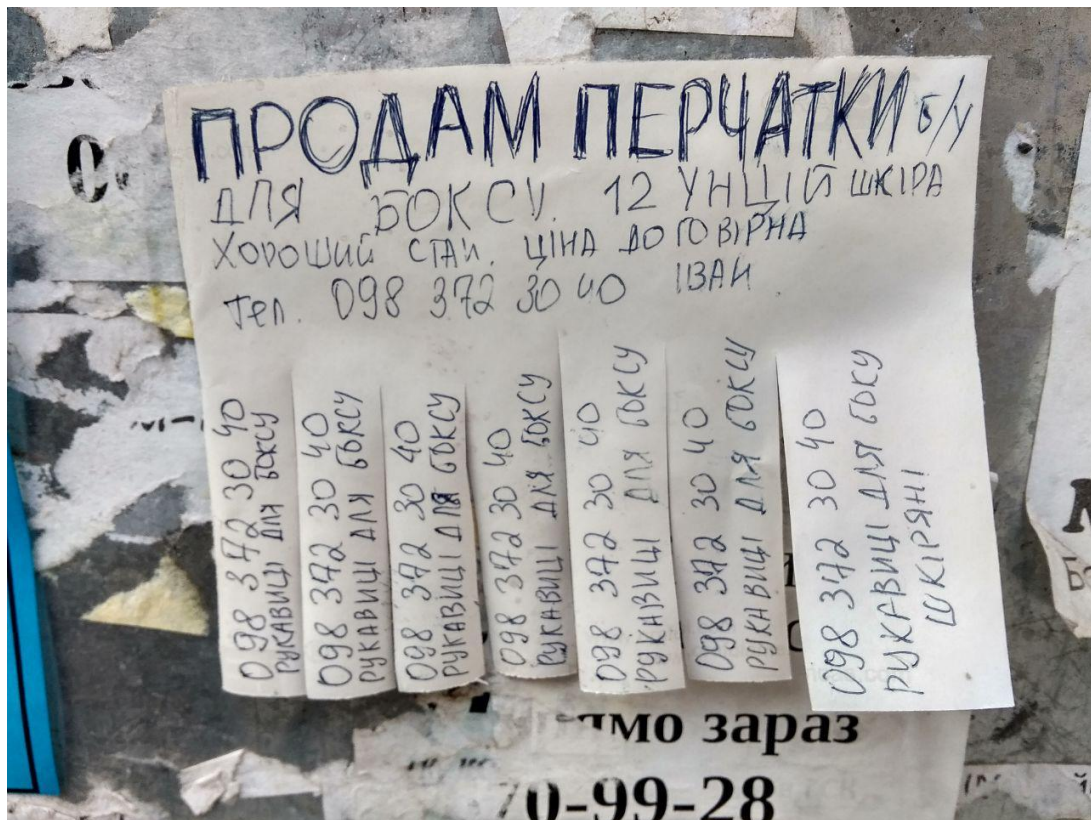 ПРОДАМ ПЕРЧАТКИ б/у
ДЛЯ БОКСУ. 12 УНЦІЙ ШКІРА
ХОРОШИЙ СТАН. ЦІНА ДОГОВІРНА
Тел. 098 372 30 40 ІВАН
098 372 30 40
РУКАВИЦІ ДЛЯ БОКСУ
098 372 30 40
РУКАВИЦІ ДЛЯ БОКСУ
098 372 30 40
РУКАВИЦІ ДЛЯ БОКСУ
098 372 30 40
РУКАВИЦІ ДЛЯ БОКСУ
098 372 30 40
РУКАВИЦІ ДЛЯ БОКСУ
098 372 30 40
РУКАВИЦІ ДЛЯ БОКСУ
098 372 30 40
РУКАВИЦІ ДЛЯ БОКУ
ШКІРЯНІ
зараз
70-99-28